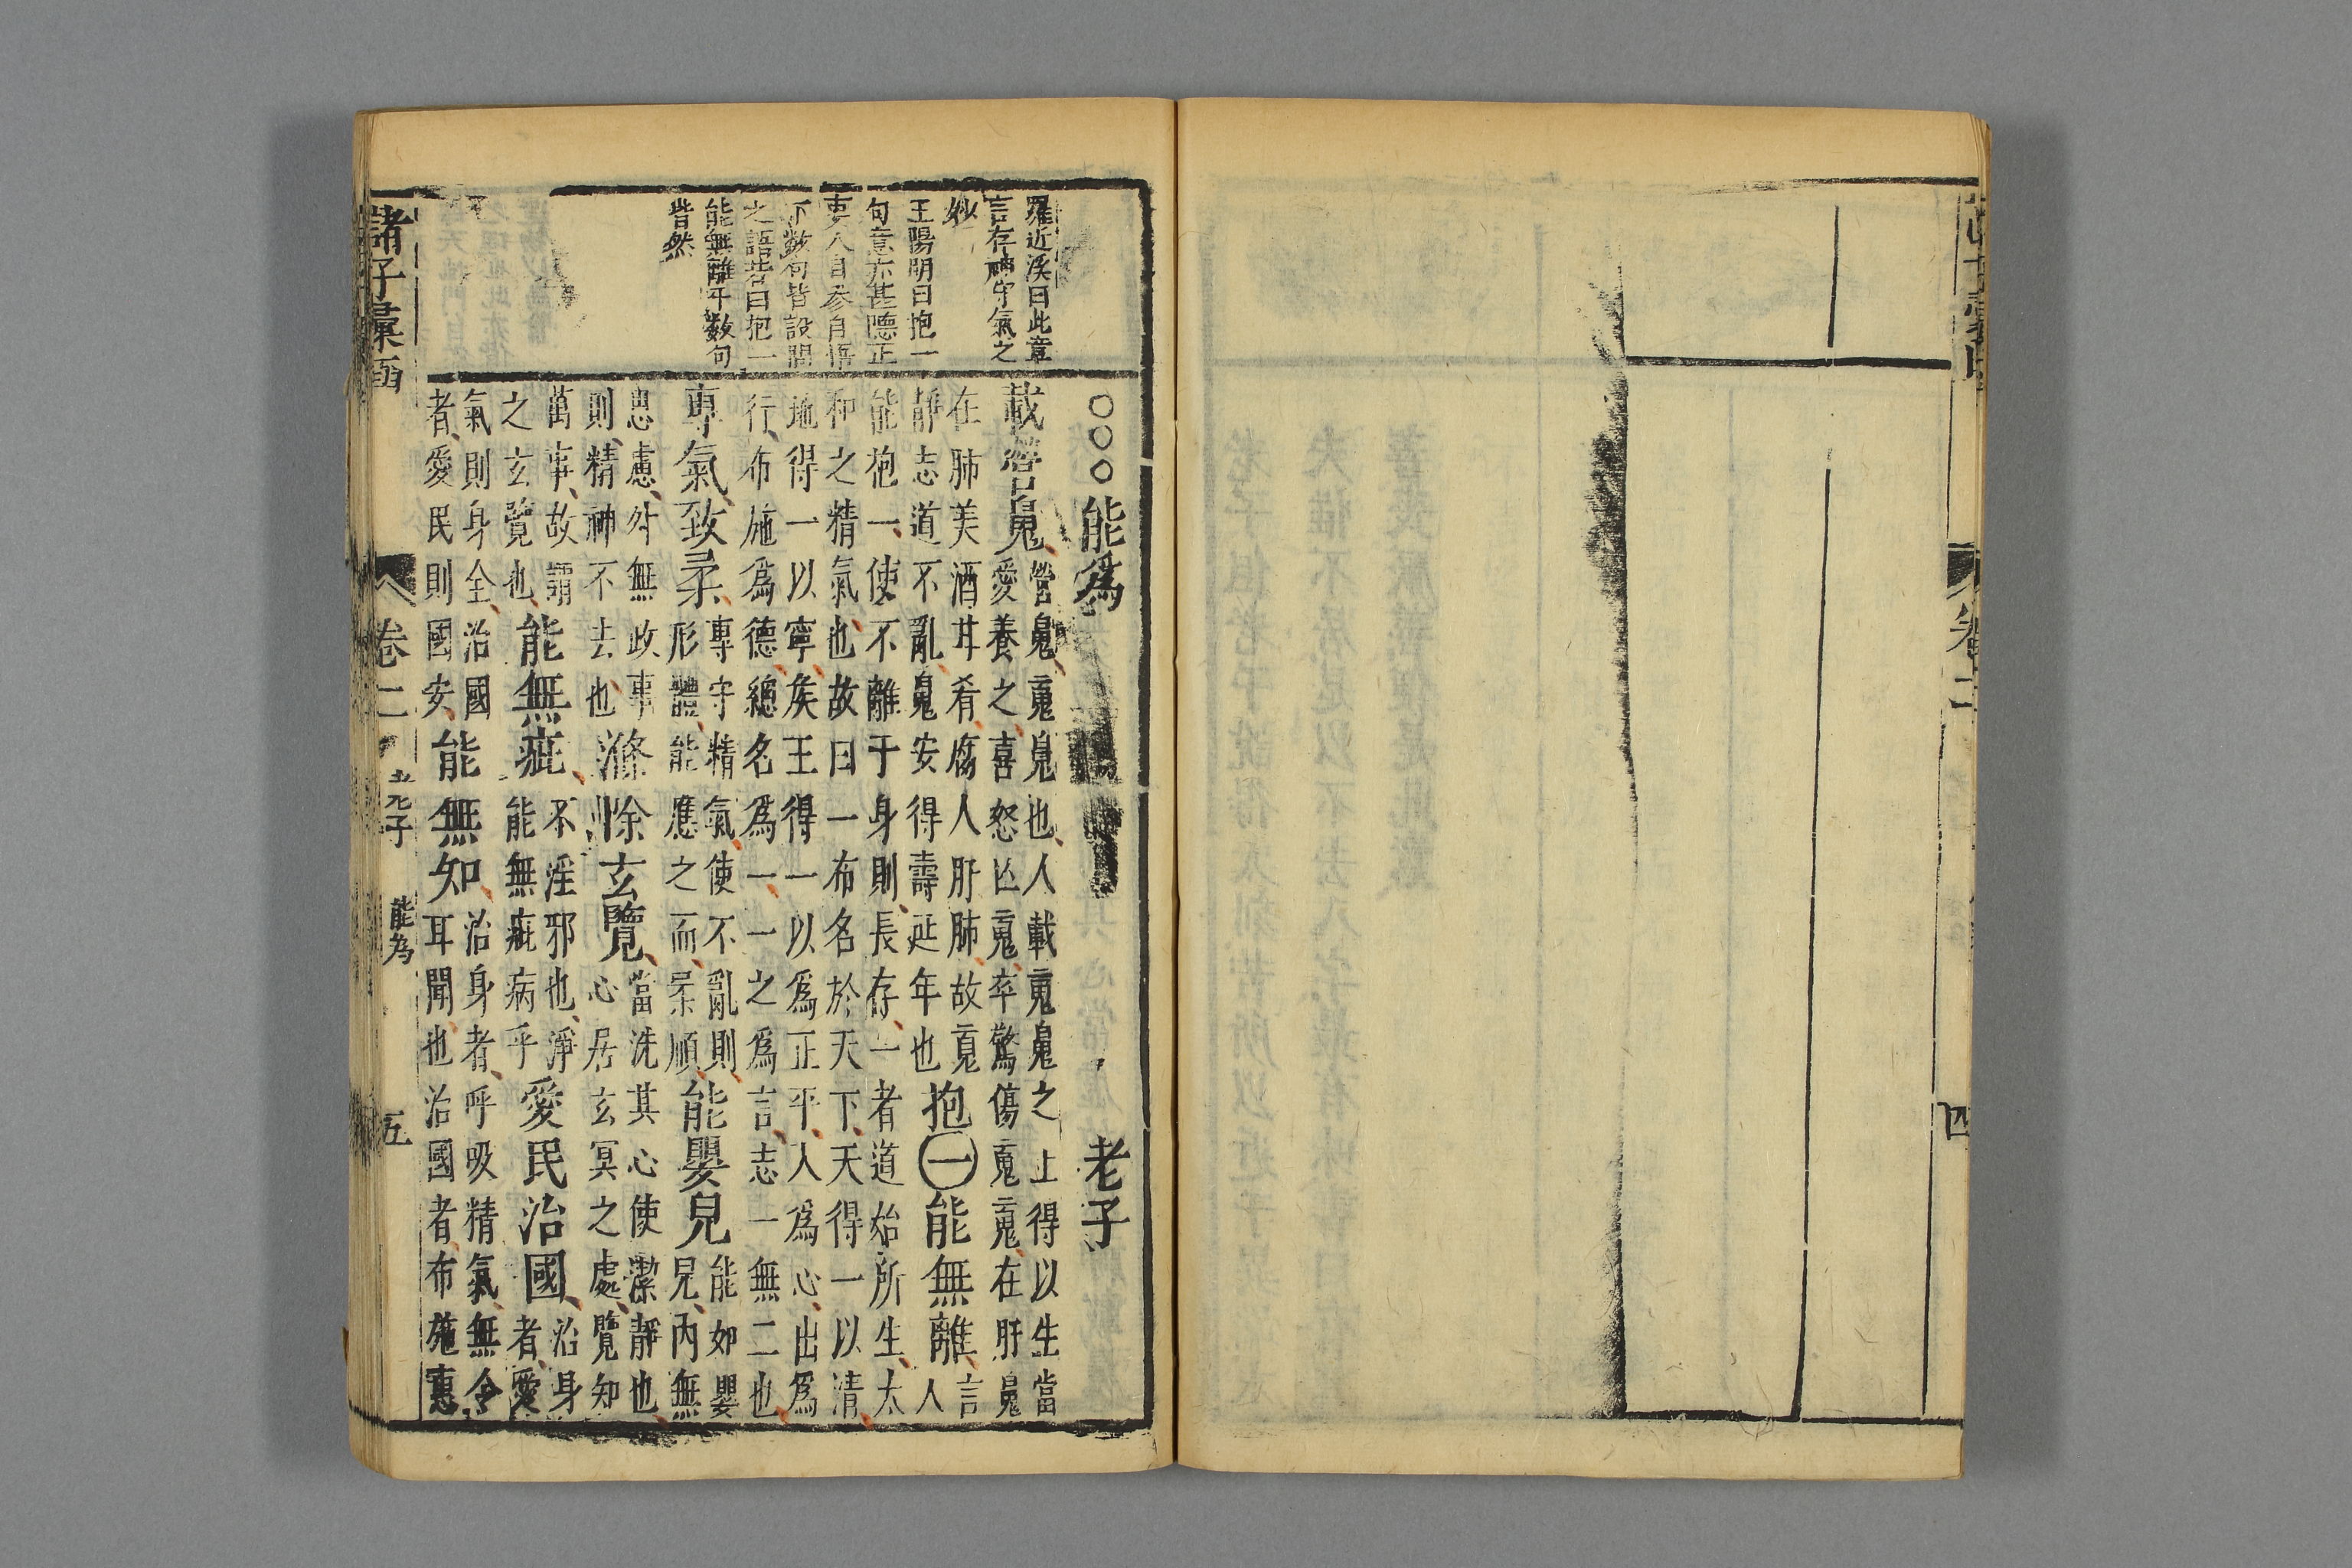 卷二
四
羅近溪曰此章
言存神守氣之
妙
王陽明曰抱一
句意亦甚隱正
要人自參自悟
下數句皆設問
之語若曰抱一
能無離乎數句
皆然
○○○能爲 老子
載營䰟
營䰟䰟䰟也人載䰟䰟之上得以生當
愛養之喜怒亡䰟卒驚傷䰟䰟在肝䰟
在肺美酒甘肴腐人肝肺故䰟
靜志道不亂䰟安得壽延年也
抱一能無離
言人
能抱一使不離于身則長存一者道始所生太
和之精氣也故曰一布名於天下天得一以清
地得一以寧矦王得一以爲正平人爲心出爲
行布施爲德總名爲一一之爲言志一無二也
專氣致柔
專守精氣使不亂則
形體能應之而柔順
能嬰兒
能如嬰
兒內無
思慮外無政事
則精神不去也
滌除玄覽
當洗其心使潔靜也
心居玄冥之處覽知
萬事故謂
之玄覽也
能無疵
不淫邪也淨
能無疵病乎
愛民治國
治身
者愛
氣則身全治國
者愛民則國安
能無知
治身者呼吸精氣無令
耳聞也治國者布施惠
諸子彙函
卷二
老子
能爲
五